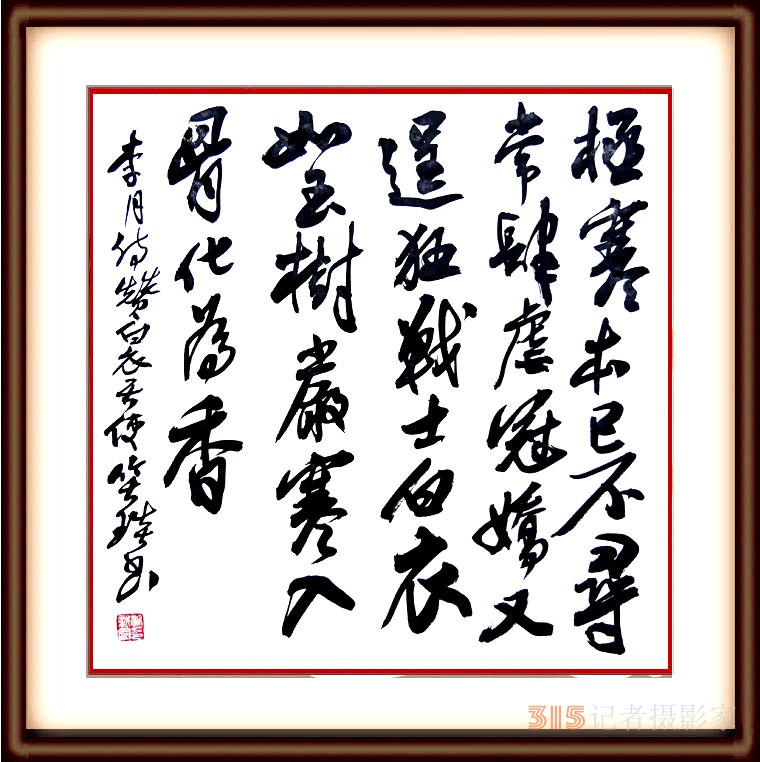 極寒本已不尋
常肆虐冠嬌又
逞狂戰士白衣
如玉樹嚴寒入
骨化為香
李月詩贊白衣天使書
315记者摄影家